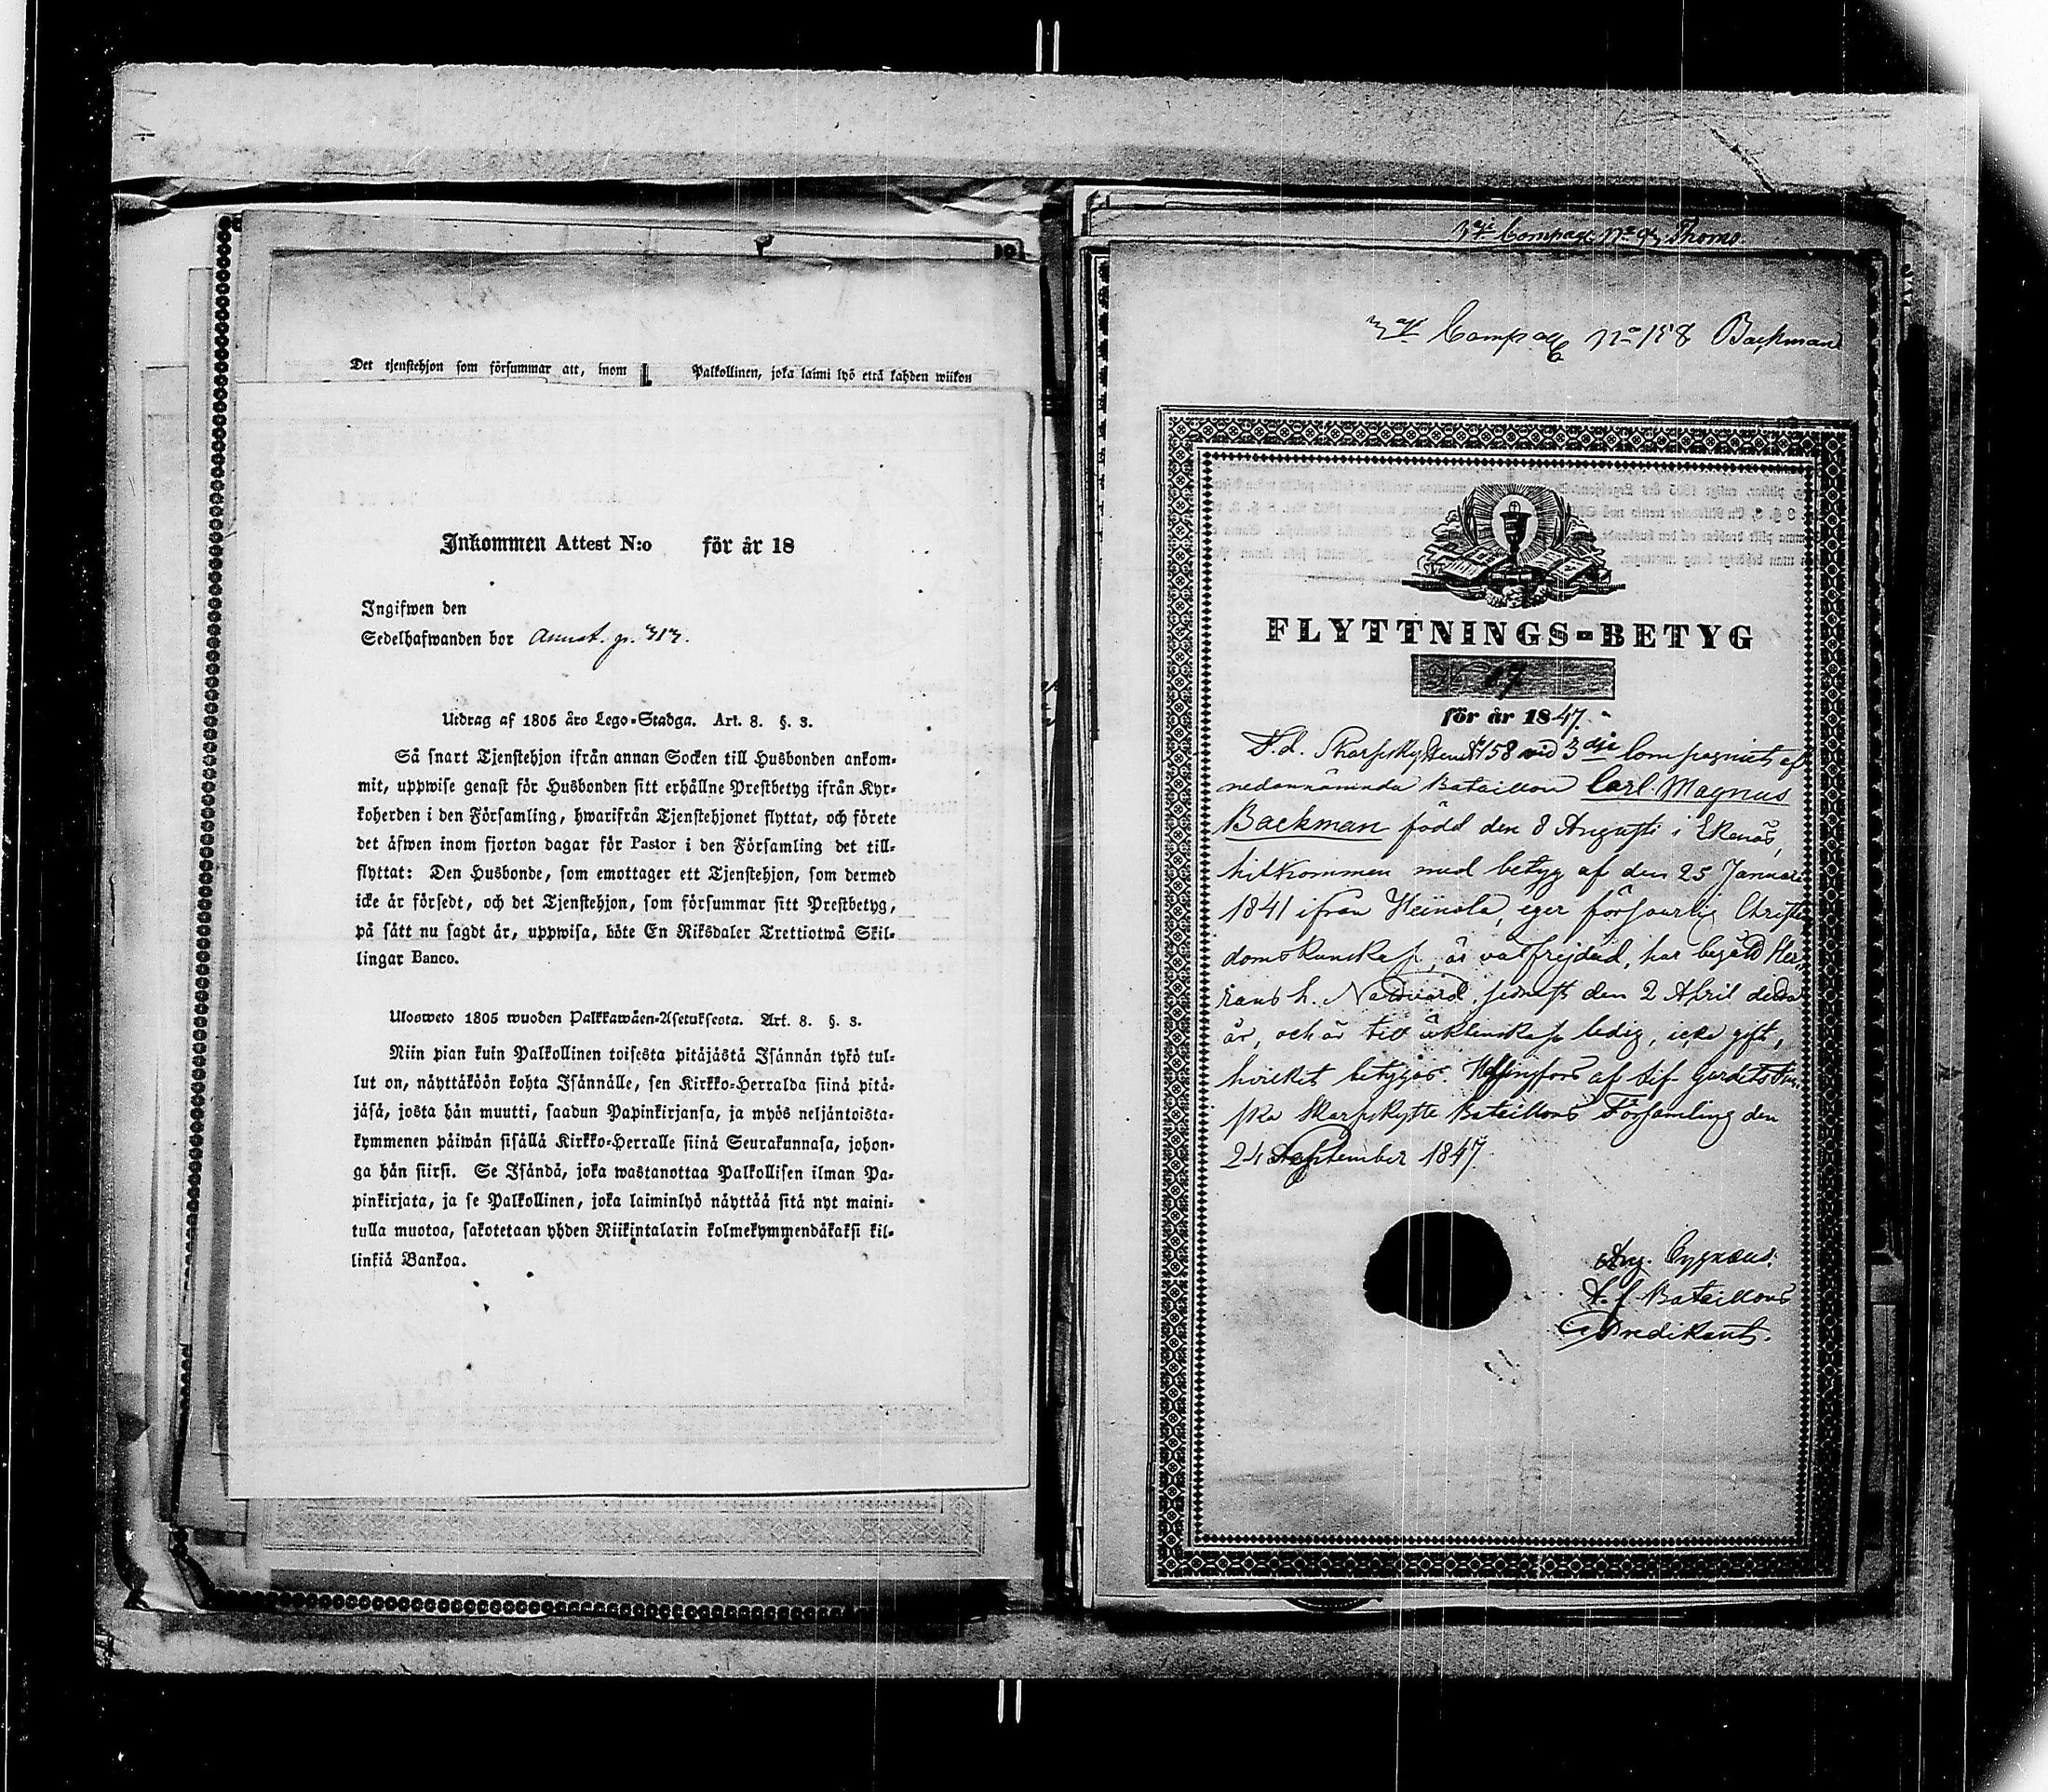 Det tjenstehjon som försummar att, inom
Palkollinen, joka laimi lyö että kahden wiikon
Inkommen Attest N:o för år 18
Ingifwen den
Sedelhafwanden bor
Utdrag af 1805 års Lego-Stadga. Art. 8. §. 3.
Så snart Tjenstehjon ifrån annan Socken till Husbonden ankom-
mit, uppwise genast för Husbonden sitt erhållne Prestbetyg ifrån Kyr-
koherden i den Församling, hwarifrån Tjenstehjonet flyttat, och förete
det äfwen inom fjorton dagar för Pastor i den Församling det till-
flyttat: Den Husbonde, som emottager ett Tjenstehjon, som dermed
icke är försedt, och det Tjenstehjon, som försummar sitt Prestbetyg,
på sätt nu sagdt är, uppwisa, böte En Riksdaler Trettiotwå Skil-
lingar Banco.
Ulosweto 1805 wuoden Palkkawäen-Asetuksesta. Art. 8. §. 3.
Niin pian kuin Palkollinen toisesta pitäjästä Isännän tykö tul-
lut on, näyttäköön kohta Isännälle, sen Kirkko-Herralda siinä pitä-
jäsä, josta hän muutti, saadun Papinkirjansa, ja myös neljäntoista-
kymmenen päiwän sisällä Kirkko-Herralle siinä Seurakunnasa, johon-
ga hän siirsi. Se Isändä, joka wastanottaa Palkollisen ilman Pa-
pinkirjata, ja se Palkollinen, joka laiminlyö näyttää sitä nyt maini-
tulla muotoa, sakotetaan yhden Riikintalarin kolmekymmendäkaksi kil-
linkiä Bankoa.
Compag No Thoms
Compag No 158 Backman
FLYTTNINGS-BETYG
No 87
för år 1847.
F.d. Skarpskytten No 158 vid 3dje Compagniet af
nedannämnda Bataillon Carl Magnus
Backman född den 8 Augusti i Ekenäs,
hitkommen med betyg af den 25 Januari
1841 ifrån Heinola, eger försvarlig Christen
domskunskap, är välfrejdad, har begått Her-
rans h. Nattvard senast den 2 April detta
år, och är till äktenskap ledig, icke gift,
hvilket betygas. Helsingfors af Lif-Gardets Fin-
ska Skarpskytte Bataillons Församling den
24 September 1847
Aug. Cygnæus.
t. f. Bataillons
Predikant.